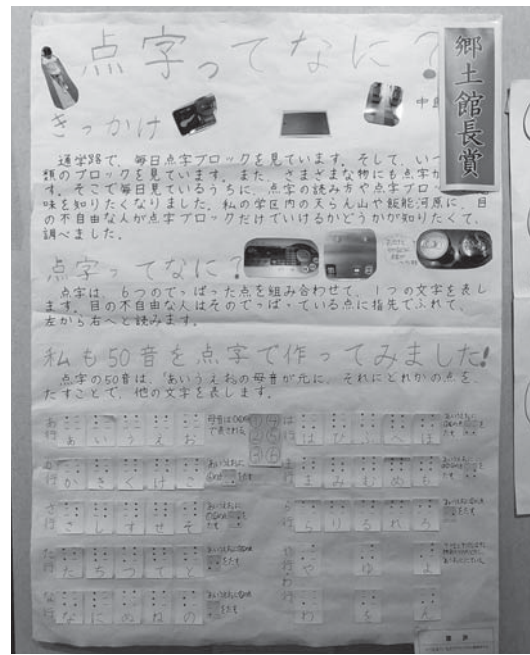 点字ってなに?
郷土館長賞
きっかけ
通学路で、毎日点字ブロックを見ています。そして、いつ
類のブロックを見ています。また、さまざまな物にも点字が
す。そこで毎日見ているうちに、点字の読み方や点字ブロッ
味を知りたくなりました。私の学区内の天らん山や飯能河原に、目
の不自由な人が点字ブロックだけでいけるかどうかが知りたくて、
調べました。
点字ってなに?
点字は、6つのでっぱった点を組み合わせて、1つの文字を表し
ます。目の不自由な人はそのでっぱっている点に指先でふれて、
左から右へと読みます。
私も50音を点字で作ってみました!
点字の50音は、「あいうえおの母音が元に、それにどれかの点を、
たすことで、他の文字を表します。
あ行 あ い う え お
は行 は ひ ふ へ ほ
か行 か き く け こ
ま行 ま み む め も
さ行 さ し す せ そ
ら行 ら り る れ ろ
た行 た ち つ て と
や ゆ よ
な行 な に ぬ ね の
わ を ん